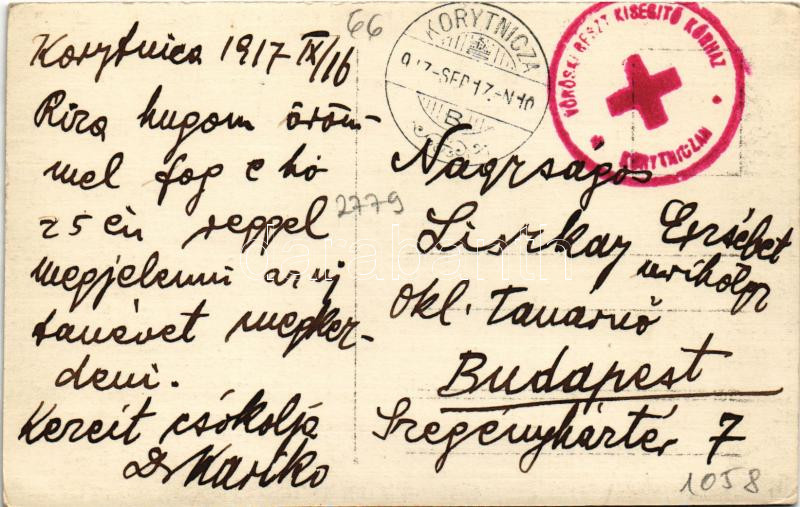 66
Korytnica 1917 IX/16
Riza hugom öröm-
mel fog e hó
25 én reggel
megjelenni az uj
tanévet megker-
deni.
Kezeit csókolja
Dr Karikó
KORYTNICZA
917-SEP 17-N10
B
VÖRÖSKERESZT KISEGITŐ KÓRHÁZ
KORYTNICZÁN
2779
Nagyságos
Liszkay Erzsébet
urihölgy
okl. Tanárnő
Budapest
Szegényháztér 7
1058
darabanth